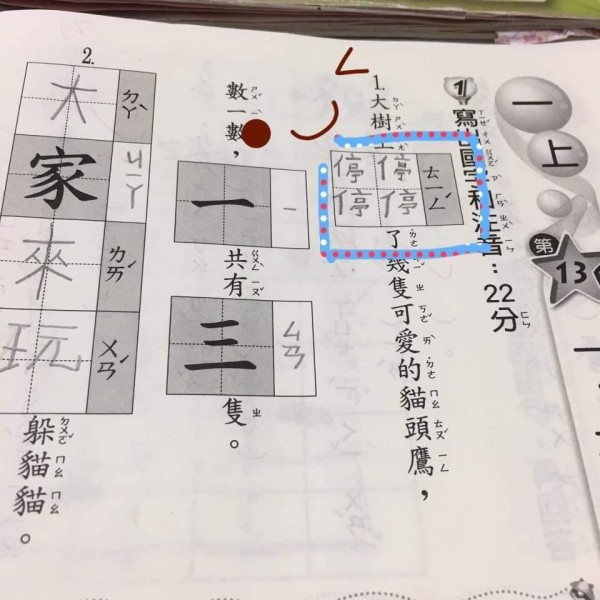 一上
第13
1 寫出國字和注音：22分
1. 大樹上停停停停ㄊㄧㄥˊ了幾隻可愛的貓頭鷹，
數一數，一ㄧ共有三ㄙㄢ隻。
2. 大ㄉㄚˋ家ㄐㄧㄚ來ㄌㄞˊ玩ㄨㄢˊ躲貓貓。